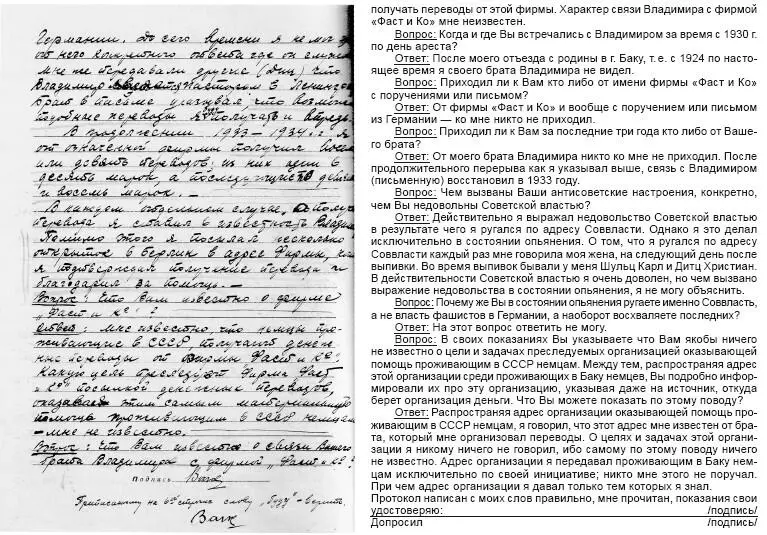 Германии. До сего времени я не мог
от него конкретного ответа где он служит
мне же передавали другие (Дитц) что
Владимир является пастором в Ленинг
Брат в письме указывал, что
подобные переводы я получать и впредь.
В продолжении 1933–1934 г. я
от означенной фирмы получил
или девять переводов: из них один в
десять марок, а последующие по девять
и восемь марок. –
В каждом отдельном случае,
перевода я ставил в известность Владим
Помимо этого я посылал несколько
открыток в Берлин в адрес Фирмы,
я подтверждал получение перевода и
благодарил за помощь. –
Вопрос: Что Вам известно о фирме
„Фаст и Ко"?
Ответ: Мне известно, что немцы про-
живающие в СССР, получают денеж-
ные переводы от Фирмы Фаст и Ко.
Какую цель преследует Фирма Фаст
и Ко посылкой денежных переводов,
оказывая этим самым материальную
помощь проживающим в СССР немцам
– мне не известно.
Вопрос: Что Вам известно о связи Вашего
брата Владимира с фирмой „Фаст и Ко"?
Подпись
Приписанному на 6ой строке слову „буду" – верить.
получать переводы от этой фирмы. Характер связи Владимира с фирмой
«Фаст и Ко» мне неизвестен.
Вопрос: Когда и где Вы встречались с Владимиром за время с 1930 г.
по день ареста?
Ответ: После моего отъезда с родины в г. Баку, т.е. с 1924 по насто-
ящее время я своего брата Владимира не видел.
Вопрос: Приходил ли к Вам кто либо от имени фирмы «Фаст и Ко»
с поручениями или письмом?
Ответ: От фирмы «Фаст и Ко» и вообще с поручением или письмом
из Германии — ко мне никто не приходил.
Вопрос: Приходил ли к Вам за последние три года кто либо от Ваше-
го брата?
Ответ: От моего брата Владимира никто ко мне не приходил. После
продолжительного перерыва как я указывал выше, связь с Владимиром
(письменную) восстановил в 1933 году.
Вопрос: Чем вызваны Ваши антисоветские настроения, конкретно,
чем Вы недовольны Советской властью?
Ответ: Действительно я выражал недовольство Советской властью
в результате чего я ругался по адресу Соввласти. Однако я это делал
исключительно в состоянии опьянения. О том, что я ругался по адресу
Соввласти каждый раз мне говорила моя жена, на следующий день после
выпивки. Во время выпивок бывали у меня Шульц Карл и Дитц Христиан.
В действительности Советской властью я очень доволен, но чем вызвано
выражение недовольства в состоянии опьянения, я не могу объяснить.
Вопрос: Почему же Вы в состоянии опьянения ругаете именно Соввласть,
а не власть фашистов в Германии, а наоборот восхваляете последних?
Ответ: На этот вопрос ответить не могу.
Вопрос: В своих показаниях Вы указываете что Вам якобы ничего
не известно о цели и задачах преследуемых организацией оказывающей
помощь проживающим в СССР немцам. Между тем, распространяя адрес
этой организации среди проживающих в Баку немцев, Вы подробно инфор-
мировали их про эту организацию, указывая даже на источник, откуда
берет организация деньги. Что Вы можете показать по этому поводу?
Ответ: Распространяя адрес организации оказывающей помощь про-
живающим в СССР немцам, я говорил, что этот адрес мне известен от бра-
та, который мне организовал переводы. О целях и задачах этой органи-
зации я никому ничего не говорил, ибо самому по этому поводу ничего
не известно. Адрес организации я передавал проживающим в Баку нем-
цам исключительно по своей инициативе; никто мне этого не поручал.
При чем адрес организации я давал только тем которых я знал.
Протокол написан с моих слов правильно, мне прочитан, показания свои
удостоверяю: /подпись/
Допросил /подпись/